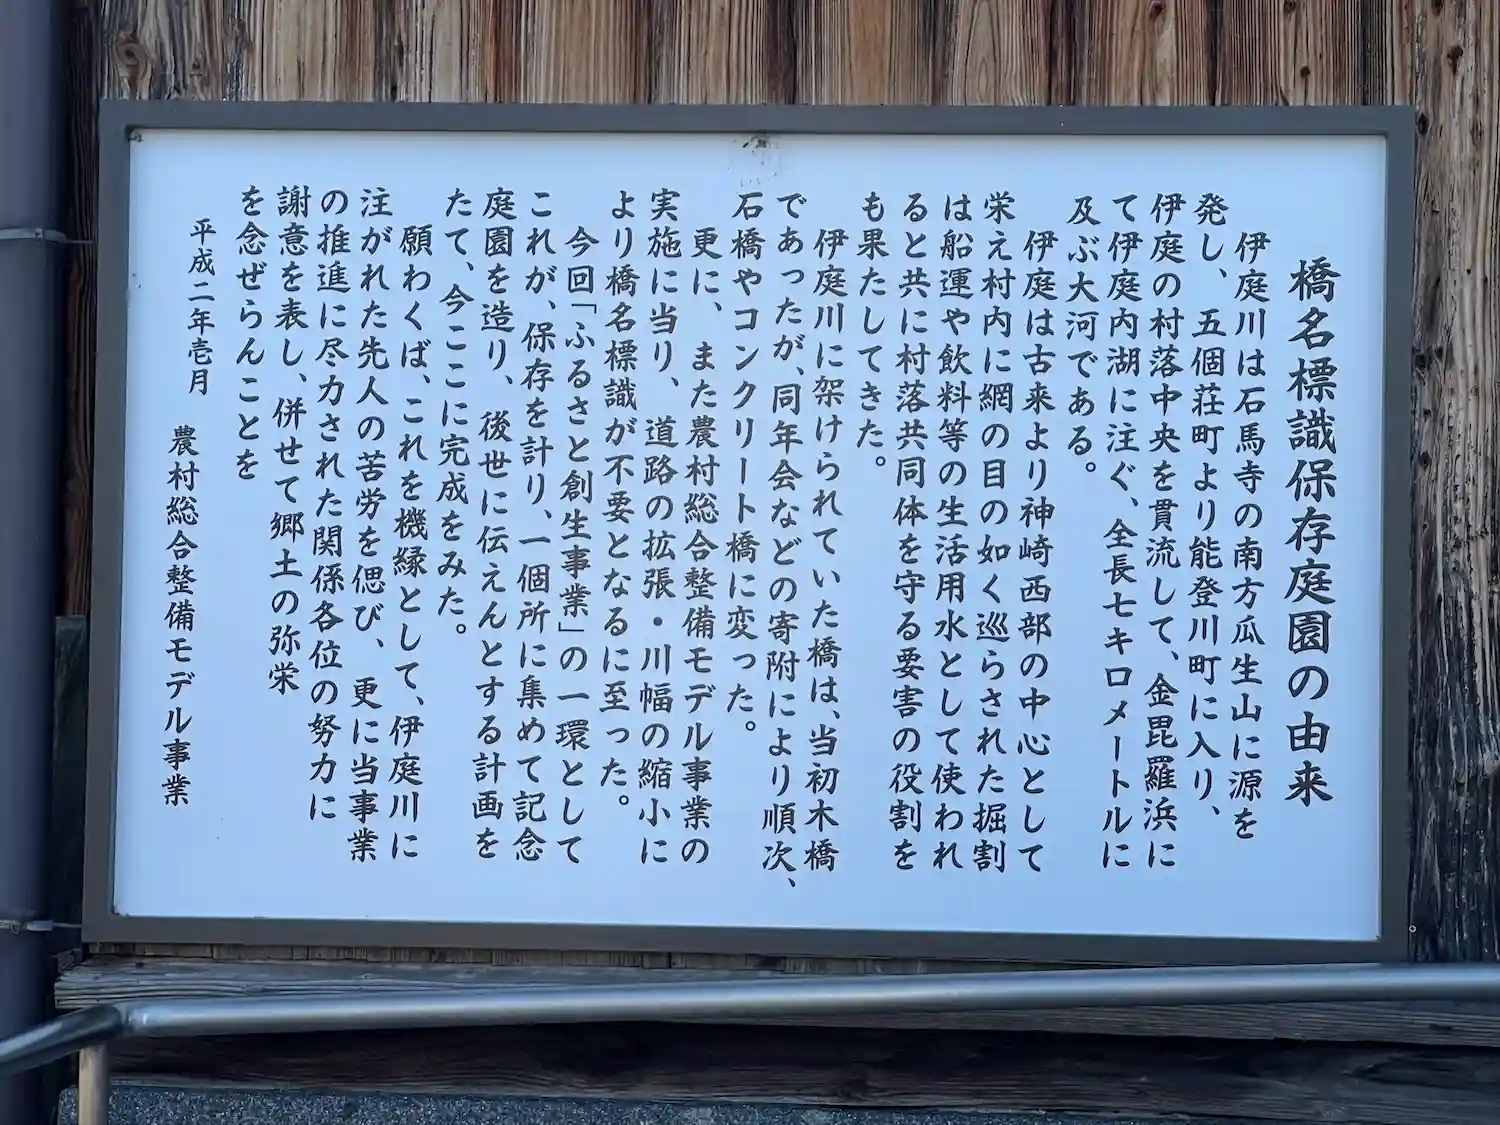 橋名標識保存庭園の由来
伊庭川は石馬寺の南方瓜生山に源を
発し、五個荘町より能登川町に入り、
伊庭の村落中央を貫流して、金毘羅浜に
て伊庭内湖に注ぐ、全長七キロメートルに
及ぶ大河である。
伊庭は古来より神崎西部の中心として
栄え村内に網の目の如く巡らされた掘割
は船運や飲料等の生活用水として使われ
ると共に村落共同体を守る要害の役割を
も果たしてきた。
伊庭川に架けられていた橋は、当初木橋
であったが、同年会などの寄附により順次、
石橋やコンクリート橋に変った。
更に、また農村総合整備モデル事業の
実施に当り、道路の拡張・川幅の縮小に
より橋名標識が不要となるに至った。
今回「ふるさと創生事業」の一環として
これが、保存を計り、一個所に集めて記念
庭園を造り、後世に伝えんとする計画を
たて、今ここに完成をみた。
願わくば、これを機縁として、伊庭川に
注がれた先人の苦労を偲び、更に当事業
の推進に尽力された関係各位の努力に
謝意を表し、併せて郷土の弥栄
を念ぜらんことを
平成二年壱月
農村総合整備モデル事業